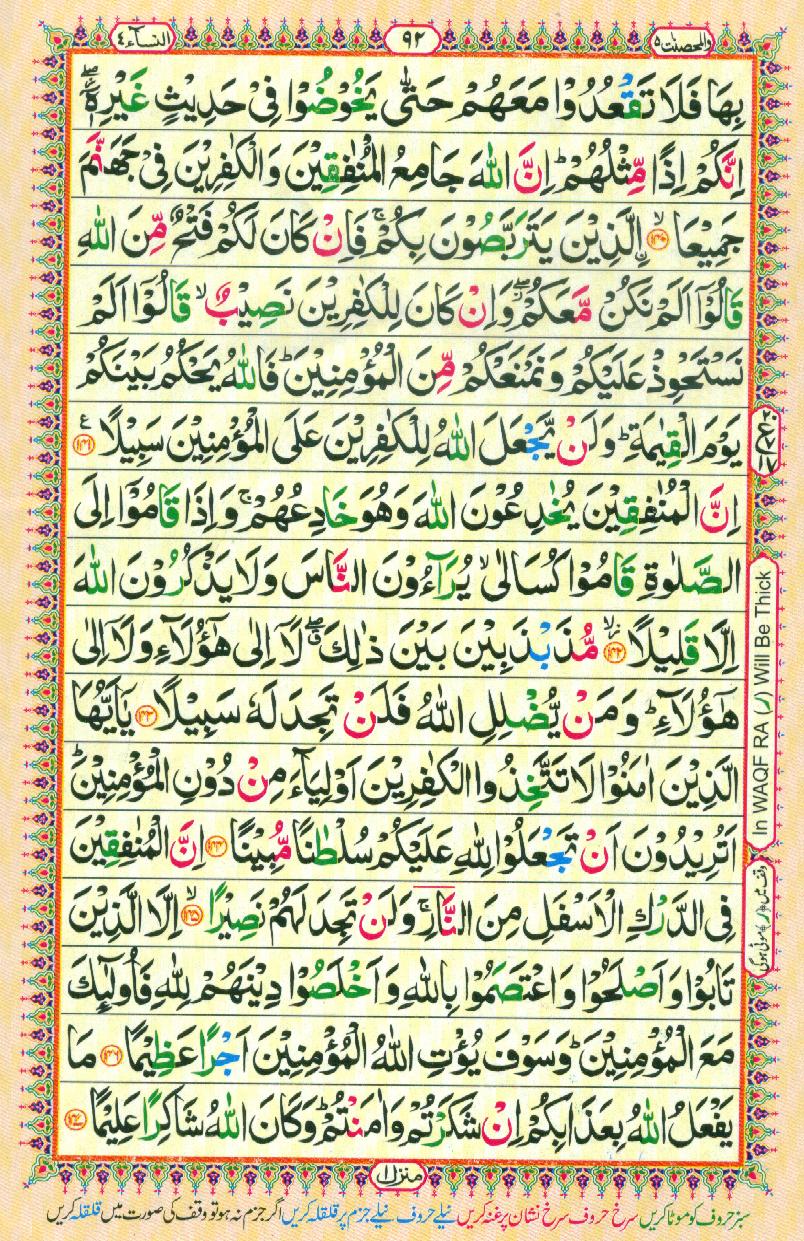 والمحصنت ۵
۹۲
النساء ۴
بِهَا فَلَا تَقْعُدُوْا مَعَهُمْ حَتّٰى يَخُوْضُوْا فِىْ حَدِيْثٍ غَيْرِهٖۤ ۖ
اِنَّكُمْ اِذًا مِّثْلُهُمْ ؕ اِنَّ اللّٰهَ جَامِعُ الْمُنٰفِقِيْنَ وَالْكٰفِرِيْنَ فِىْ جَهَنَّمَ
جَمِيْعَا ۙ‏﴿۱۴۰﴾ اۨلَّذِيْنَ يَتَرَبَّصُوْنَ بِكُمْ ۚ فَاِنْ كَانَ لَكُمْ فَتْحٌ مِّنَ اللّٰهِ
قَالُوْۤا اَلَمْ نَكُنْ مَّعَكُمْ ۖ وَاِنْ كَانَ لِلْكٰفِرِيْنَ نَصِيْبٌ ۙ قَالُوْۤا اَلَمْ
نَسْتَحْوِذْ عَلَيْكُمْ وَنَمْنَعْكُمْ مِّنَ الْمُؤْمِنِيْنَ ؕ فَاللّٰهُ يَحْكُمُ بَيْنَكُمْ
يَوْمَ الْقِيٰمَةِ ؕ وَلَنْ يَّجْعَلَ اللّٰهُ لِلْكٰفِرِيْنَ عَلَى الْمُؤْمِنِيْنَ سَبِيْلًا ﴿۱۴۱﴾ ع
اِنَّ الْمُنٰفِقِيْنَ يُخٰدِعُوْنَ اللّٰهَ وَهُوَ خَادِعُهُمْ ۚ وَاِذَا قَامُوْۤا اِلَى
الصَّلٰوةِ قَامُوْا كُسَالٰى ۙ يُرَآءُوْنَ النَّاسَ وَلَا يَذْكُرُوْنَ اللّٰهَ
اِلَّا قَلِيْلًا ۙ ﴿۱۴۲﴾ مُّذَبْذَبِيْنَ بَيْنَ ذٰلِكَ ۖ لَاۤ اِلٰى هٰٓؤُلَآءِ وَلَاۤ اِلٰى
هٰٓؤُلَآءِ ؕ وَمَنْ يُّضْلِلِ اللّٰهُ فَلَنْ تَجِدَ لَهٗ سَبِيْلًا ﴿۱۴۳﴾ يٰۤاَيُّهَا
الَّذِيْنَ اٰمَنُوْا لَا تَتَّخِذُوا الْكٰفِرِيْنَ اَوْلِيَآءَ مِنْ دُوْنِ الْمُؤْمِنِيْنَ ؕ
اَتُرِيْدُوْنَ اَنْ تَجْعَلُوْا لِلّٰهِ عَلَيْكُمْ سُلْطٰنًا مُّبِيْنًا ﴿۱۴۴﴾ اِنَّ الْمُنٰفِقِيْنَ
فِى الدَّرْكِ الْاَسْفَلِ مِنَ النَّارِ ۚ وَلَنْ تَجِدَ لَهُمْ نَصِيْرًا ۙ ﴿۱۴۵﴾ اِلَّا الَّذِيْنَ
تَابُوْا وَاَصْلَحُوْا وَاعْتَصَمُوْا بِاللّٰهِ وَاَخْلَصُوْا دِيْنَهُمْ لِلّٰهِ فَاُولٰٓئِكَ
مَعَ الْمُؤْمِنِيْنَ ؕ وَسَوْفَ يُؤْتِ اللّٰهُ الْمُؤْمِنِيْنَ اَجْرًا عَظِيْمًا ﴿۱۴۶﴾ مَا
يَفْعَلُ اللّٰهُ بِعَذَابِكُمْ اِنْ شَكَرْتُمْ وَاٰمَنْتُمْ ؕ وَكَانَ اللّٰهُ شَاكِرًا عَلِيْمًا ﴿۱۴۷﴾
In WAQF RA (ر) Will Be Thick
وقف میں (ر) موٹی ہوگی
منزل ۱
سبز حروف کو موٹا کریں سرخ حروف سرخ نشان پر غنہ کریں نیلے حروف نیلے جزم پر قلقلہ کریں اگر جزم نہ ہو تو وقف کی صورت میں قلقلہ کریں